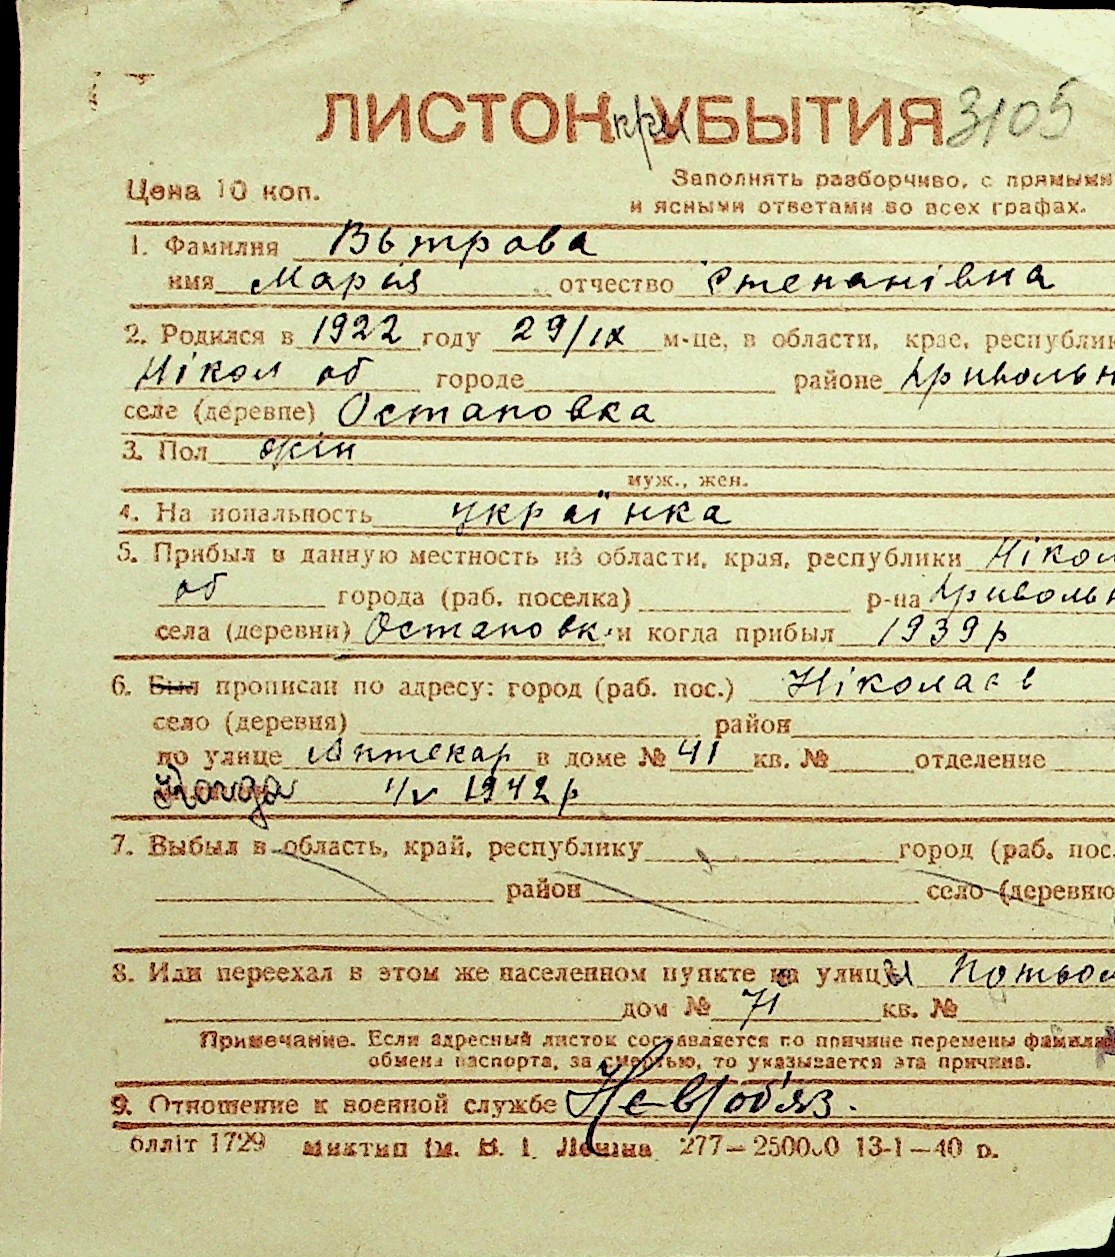 ЛИСТОК при УБЫТИЯ 3105
Цена 10 коп.
Заполнять разборчиво, с прямыми
и ясными ответами во всех графах.
1. Фамилия Вътрова
имя Марія отчество Степанівна
2. Родился в 1922 году 29/IX м-це, в области, крае, республик
Нікол об городе районе Привольн
селе (деревне) Остаповка
3. Пол жін
муж., жен.
4. На иональность українка
5. Прибыл в данную местность из области, края, республики Нікол
об города (раб. поселка) р-на Привольн
села (деревни) Остаповк и когда прибыл 1939 р
6. Был прописан по адресу: город (раб. пос.) Ніколаев
село (деревня) район
по улице Аптекар в доме № 41 кв. № отделение
Когда 1/V 1942 р
7. Выбыл в область, край, республику город (раб. пос.
район село (деревню
8. Или переехал в этом же населенном пункте на улицы
дом № 71 кв. №
Примечание. Если адресный листок составляется по причине перемены фамилии
обмена паспорта, за смертью, то указывается эта причина.
9. Отношение к военной службе Невіоб'яз.
блліт 1729 миктип ім. В. І. Леніна 277—250000 13-1—40 р.